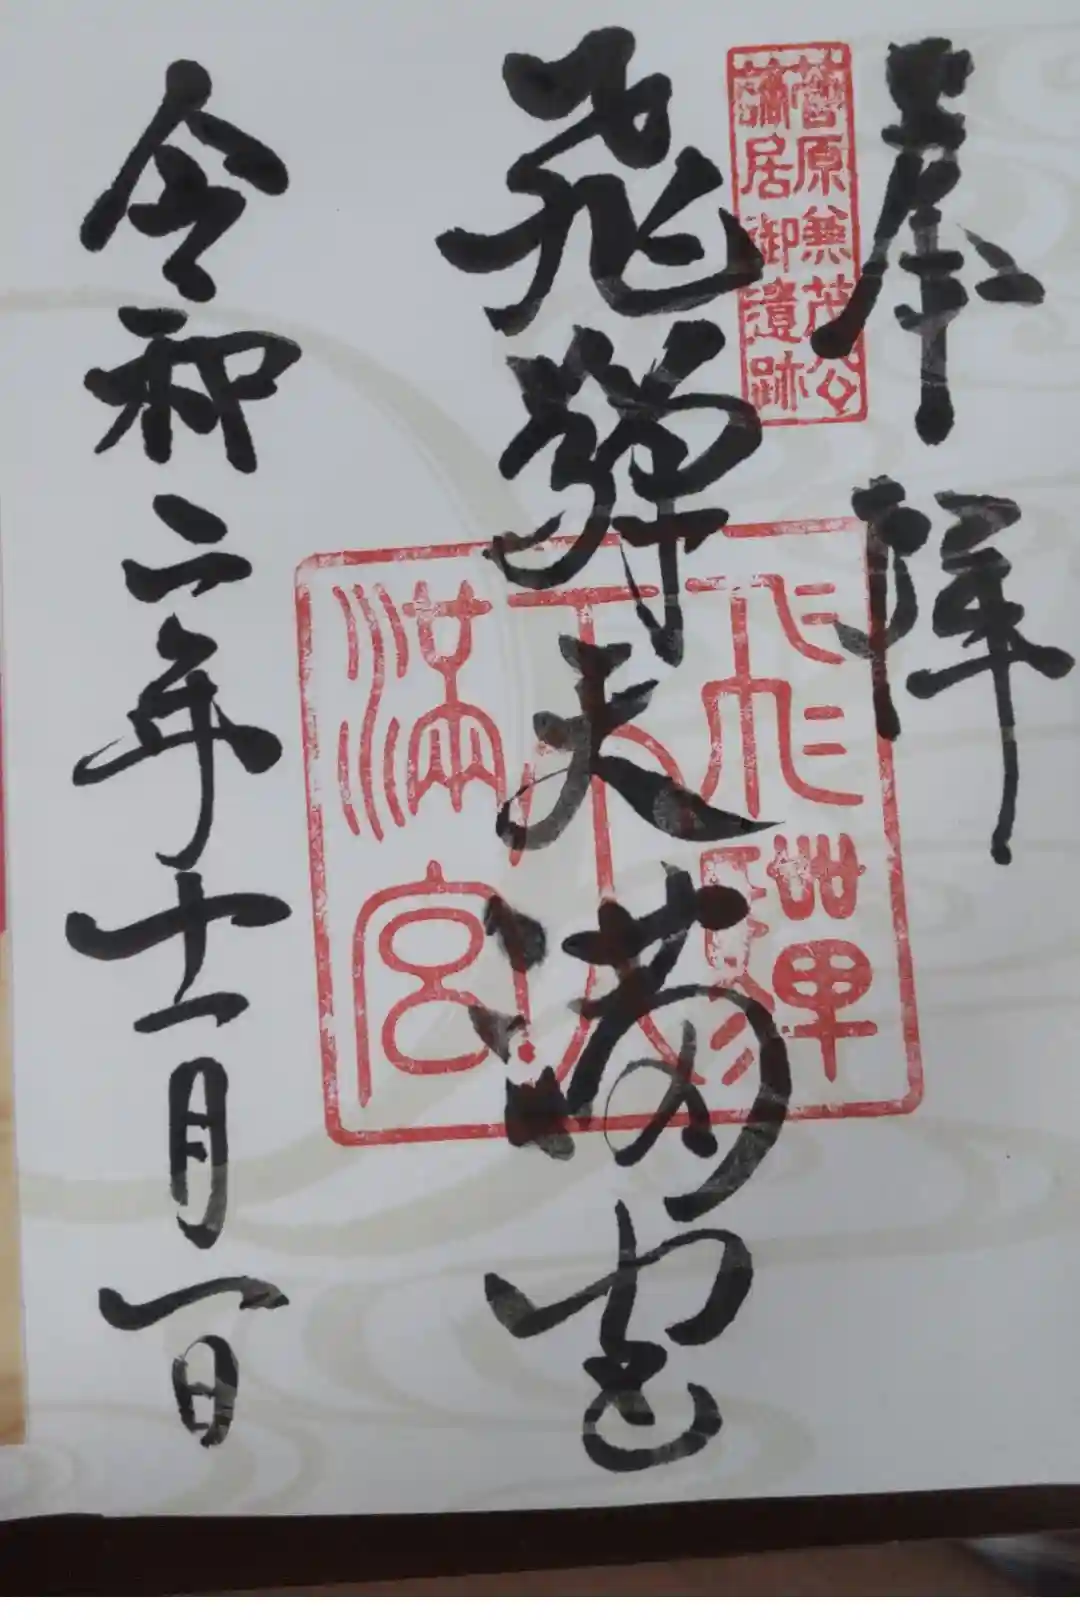 奉拝
菅原兼茂公
謫居御遺跡
飛騨天満宮
飛驒
天
満宮
令和二年十一月一日